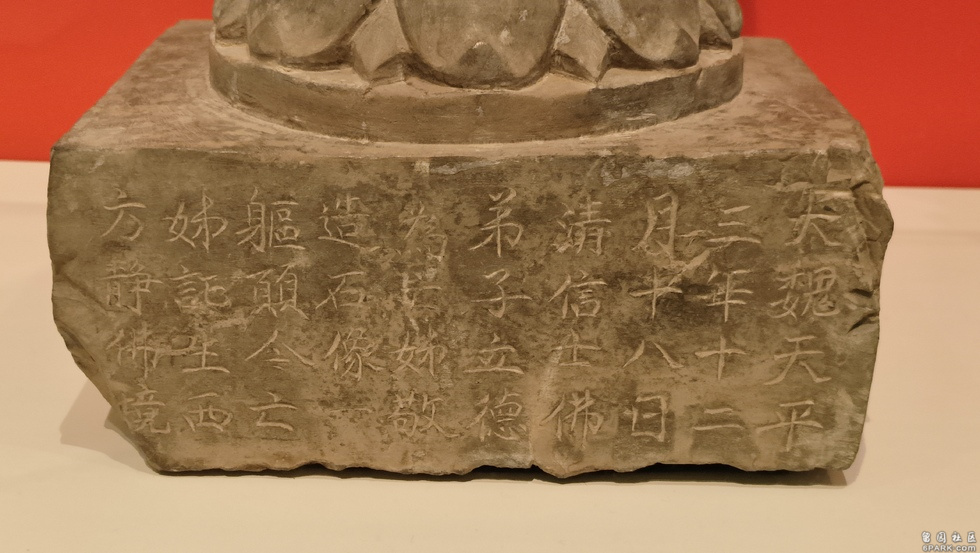 大魏天平
三年十二
月十八日
清信士佛
弟子立德
為亡姊敬
造石像一
軀願令亡
姊託生西
方静佛境
6PARK.com